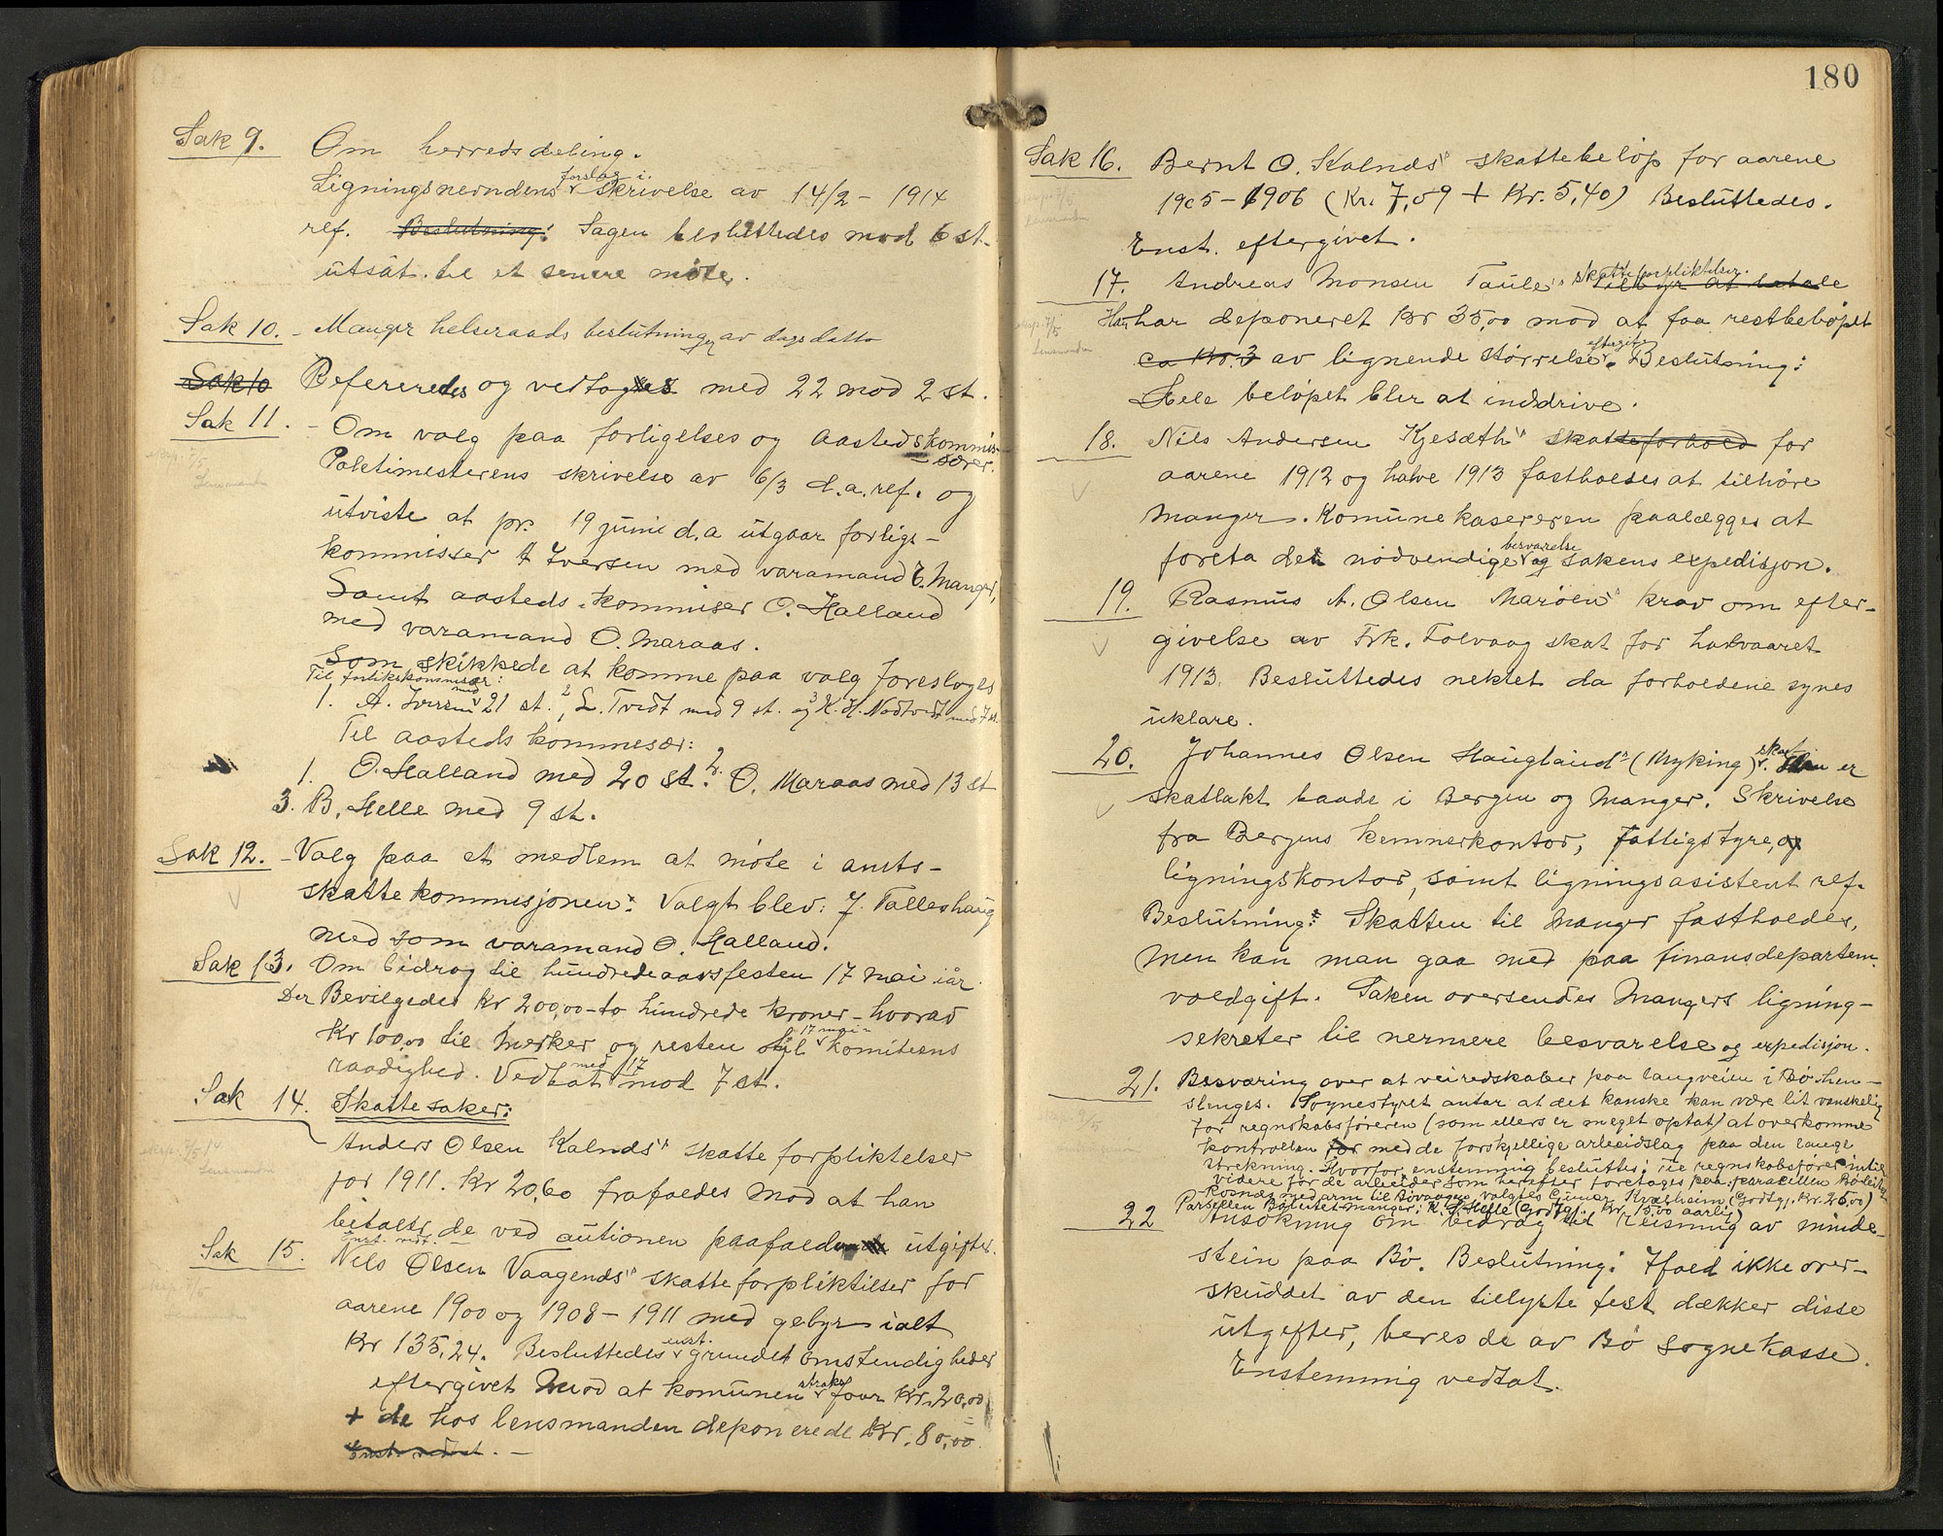 Sak 9. Om herredsdeling.
Ligningsnevndens forslag i skrivelse av 14/2 - 1914
ref. Beslutning: Sagen besluttedes mod 6 st.
utsat til et senere møte.
Sak 10. - Manger helseraads beslutninger av dags datto
Sak 10 Refereredes og vedtoges med 22 mod 2 st.
Sak 11. - Om valg paa forligelses og aastedskommis-
- særer.
Politimesterens skrivelse av 6/3 d.a. ref. og
utviste at pr. 19 juni d.a utgaar forligs-
kommisser A Iversen med varamand E. Manger,
Samt aasteds kommiser O. Halland
med varamand O. Maraas.
Som skikkede at komme paa valg foresloges
Til forlikskommisær:
1. A. Iversen med 21 st. 2 L. Tvedt med 9 st. og 3 K. H. Nødtvedt med 7 st.
Til aasteds kommesær:
1. O. Halland med 20 st. 2. O. Maraas med 13 st
3. B. Helle med 9 st.
Sak 12. - Valg paa et medlem at møte i amts-
skattekommisjonen: Valgt blev: J. Talleshaug
med som varamand O. Halland.
Sak 13. Om bidrag til hundredeaarsfesten 17 mai iår.
Der Bevilgedes Kr 200,00 - to hundrede kroner - hvorav
Kr 100,00 til Merker og resten til 17 mai - komiteens
raadighed. Vedtat med 17 mod 7 st.
Sak 14. Skattesaker:
Anders Olsen Kalnæs" skatteforpliktelser
for 1911. Kr 20,60 frafaldes mod at han
betaler de ved autionen paafaldende utgifter.
Enst. vedt.
Sak 15. Nils Olsen Vaagenæs" skatteforpliktilser for
aarene 1900 og 1908 - 1911 med gebyr ialt
Kr 135,24. Besluttedes enst. grundet omstendigheder
eftergivet mod at komunen straks faar Kr. 20,00
+ de hos lensmanden deponerede Kr. 80,00
Enst. vedtat. -
180
Sak 16. Bernt O. Kalnæs" skattebeløp for aarene
1905 - 1906 (Kr. 7,59 + Kr. 5,40) Besluttedes.
Enst. eftergivet.
17. Andreas Monsen Taule" skatteforpliktelser. tilbyr at betale
Han har deponeret Kr 35,00 mod at faa restbeløpet
ca Kr. 3 av lignende størrelse eftergivet. Beslutning:
Hele beløpet blir at inddrive.
18. Nils Andersen Kjesæth" skatteforhold for
aarene 1912 og halve 1913 fastholdes at tilhøre
Manger. Komunekassereren paalægges at
foreta den nødvendige besvarelse og sakens expedisjon.
19. Rasmus A. Olsen Marøens" krav om efter-
givelse av Frk. Tolvaag skat for halvaaret
1913. Besluttedes nektet da forholdene synes
uklare.
20. Johannes Olsen Hauglands" (Myking) skat. er
skatlakt baade i Bergen og Manger. Skrivelse
fra Bergens kemnerkontor, fattigstyre, og
ligningskontor, samt ligningsasistent ref.
Beslutning: Skatten til Manger fastholdes,
men kan man gaa med paa finansdepartem.
voldgift. Saken oversendes Mangers ligning-
sekretær til nermere besvarelse og expedisjon.
21. Besværing over at veiredskaber paa langveien i Bø hen-
slenges. Sognestyret antar at det kanske kan være lit vanskelig
for regnskabsføreren (som ellers er meget optat) at overkomme
kontrollen med de forskjellige arbeidslag paa den lange
strekning. Hvorfor enstemmig besluttes: Til regnskabsfører indtil
videre for de arbeider som herefter foretages paa: parcellen
Rosnes med arm til valgtes Gunar Kvalheim (Godtgj. Kr. 25,00)
Parsellen Manger: K. S. Helle (Godtgj. Kr. 15,00 aarlig)
22 Ansøkning om bidrag til reisning av minde-
stein paa Bø. Beslutning: Ifald ikke over-
skuddet av den tillyste fest dækker disse
utgifter, beres de av Bø sognekasse.
Enstemmig vedtat.